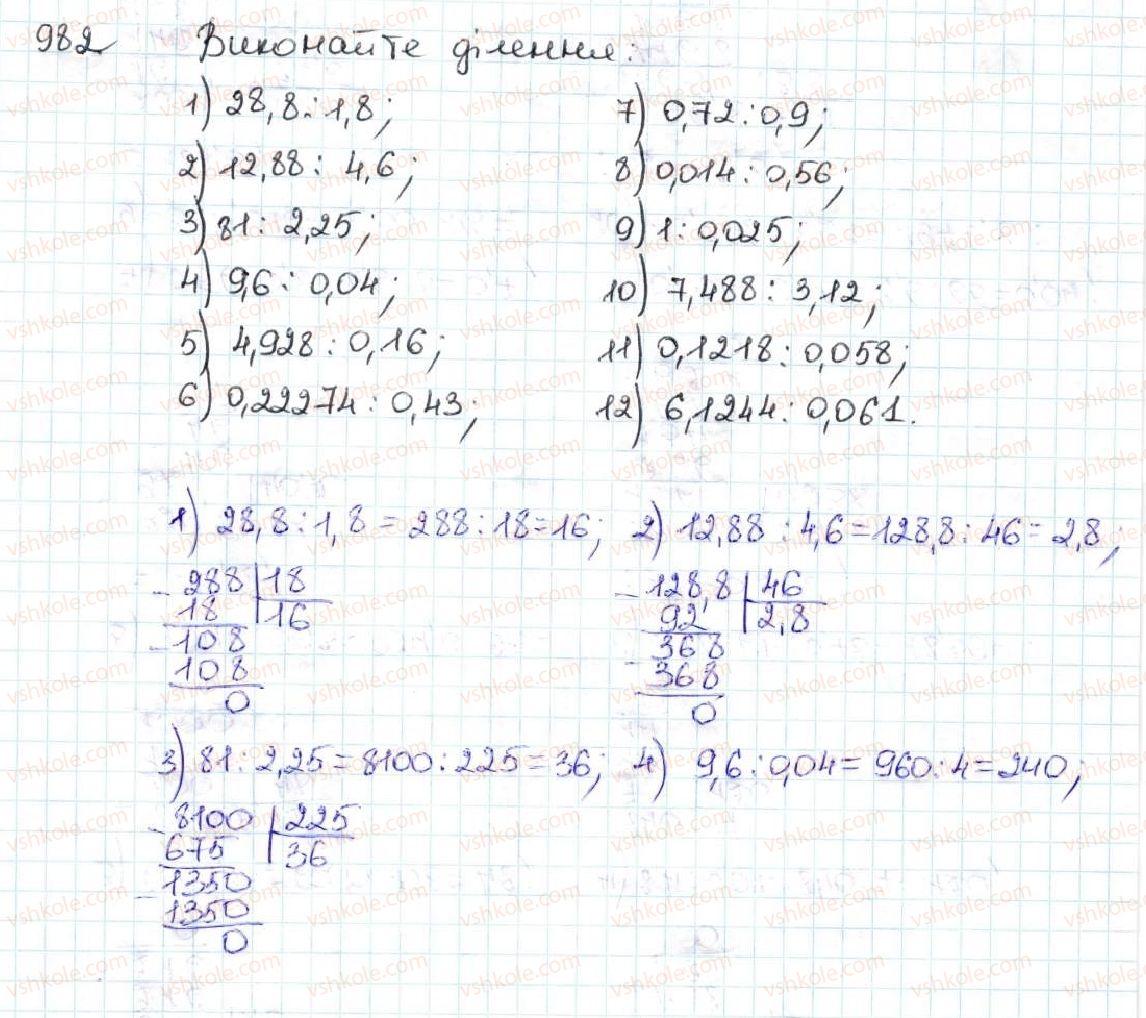 982 Виконайте ділення:
1) 28,8 : 1,8; 7) 0,72 : 0,9;
2) 12,88 : 4,6; 8) 0,014 : 0,56;
3) 81 : 2,25; 9) 1 : 0,025;
4) 9,6 : 0,04; 10) 7,488 : 3,12;
5) 4,928 : 0,16; 11) 0,1218 : 0,058;
6) 0,22274 : 0,43; 12) 6,1244 : 0,061.
1) 28,8 : 1,8 = 288 : 18 = 16; 2) 12,88 : 4,6 = 128,8 : 46 = 2,8;
- 288 | 18 - 128,8 | 46
18 | 16 92 | 2,8
- 108 - 368
108 368
0 0
3) 81 : 2,25 = 8100 : 225 = 36; 4) 9,6 : 0,04 = 960 : 4 = 240;
- 8100 | 225
675 | 36
- 1350
1350
0
vshkole.com